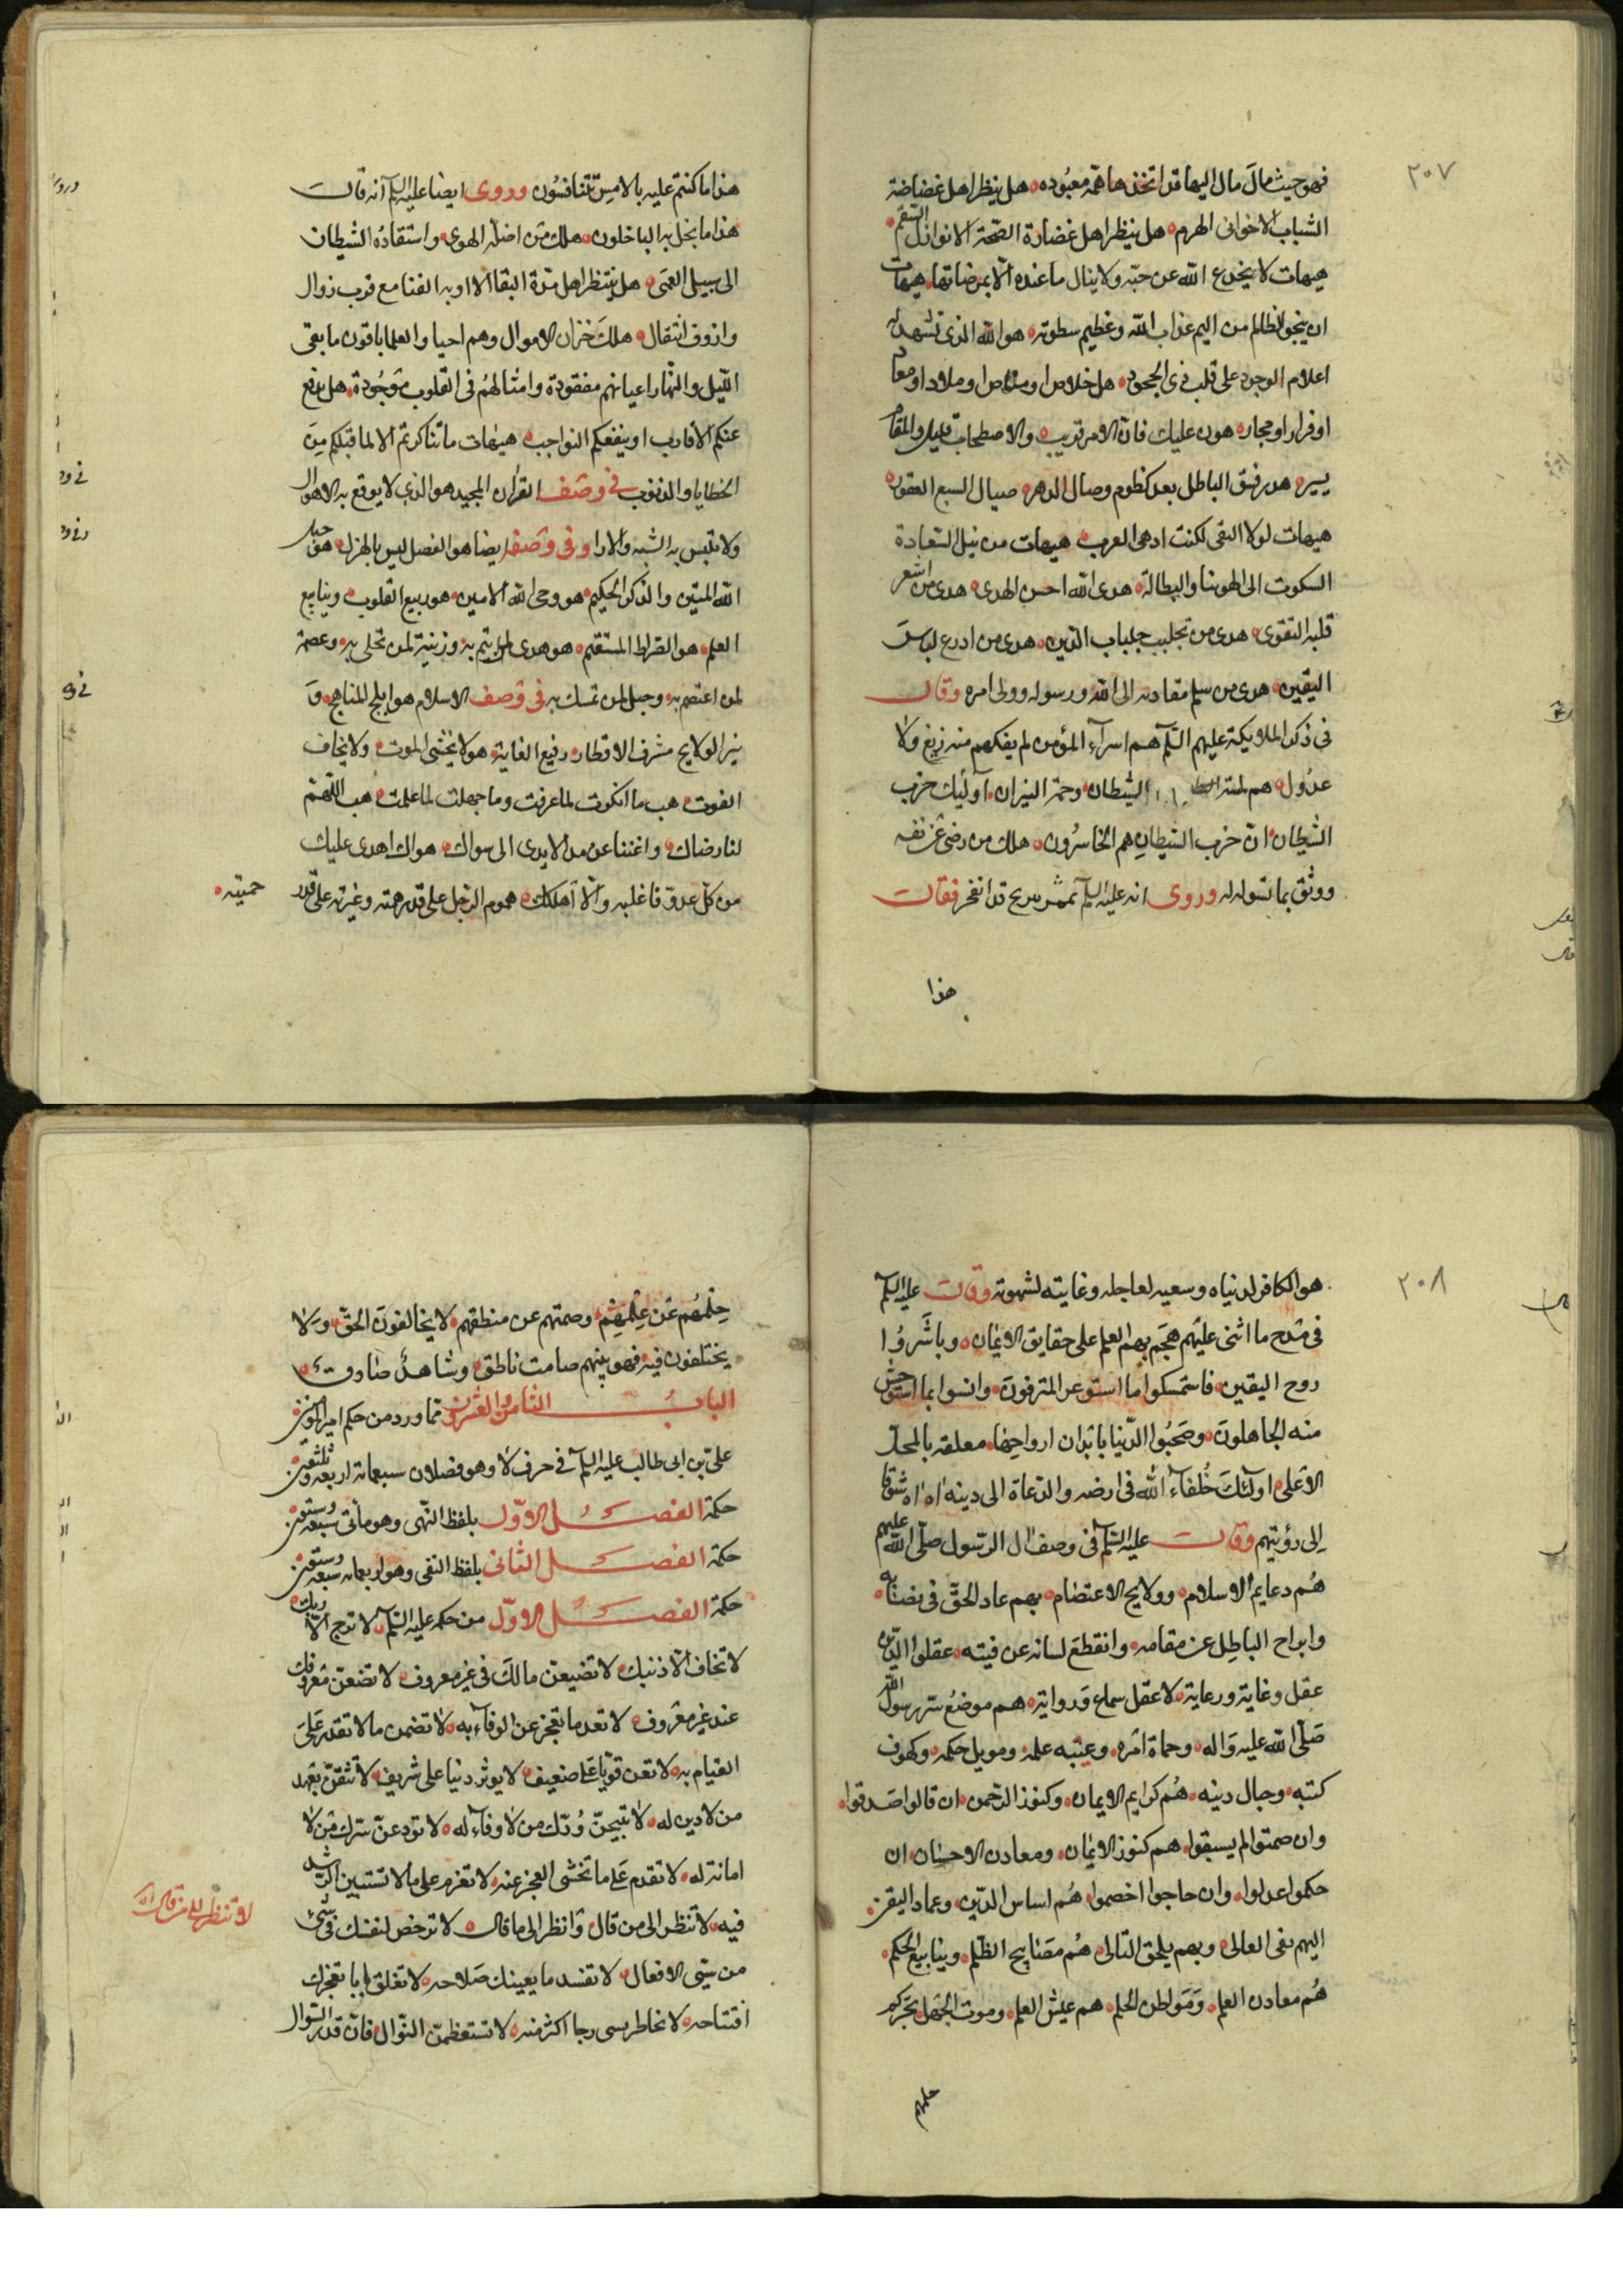 ٢٠٧
فهو حيث مال مال اليها قد اتخذها همّه معبُوده هل ينظر اهل غضاضة
الشباب الا خوانى الهرم هل ينظر اهل غضارة الصّحّة الا نوازل السّقم
هيهات لا يخدع الله عن جنّته ولا ينال ما عنده الّا بمرضاته هيهات
ان ينجو الظالم من اليم عذاب الله وعظيم سطوته هو الله الذى تشهد له
اعلام الوجود على قلب ذى الجحود هل خلاص او مناص او ملاذ او معاذ
او فرار او مجار هون عليك فان الامر قريب والاصطحاب قليل والمقام
يسير هدر فنيق الباطل بعد كظوم وصال الدهر صيال السبع العقور
هيهات لولا التقى لكنت ادهى العرب هيهات من نيل السّعادة
السكون الى الهوينا والبطالة هدى الله احسن الهدى هدى من اشعر
قلبه التقوى هدى من تجلبب جلباب الدّين هدى من ادرع لباسَ
اليقين هدى من سلم مقادته الى الله ورسوله وولى امره وقال
فى ذكر الملايكة عليهم السّلم هم اسرآء المؤمن لم يفكهم منه زيغ ولا
عدُول هم لمّة الشيطان وحمة النيران آولئك حزب
الشيطان انّ حزب الشيطانِ هم الخاسرُون هلك من رضى عن نفسه
ووثق بما تسوله له وروى انه عليه السلم مرّ بمن قد انفجر فقال
هذا
هذا ما كنتم عليه بالامسِ تتنافسُون وروى ايضا عليه السلم انه قال
هذا ما بخل به الباخلون هلك من اضلّه الهوى واستقادُه الشيطان
الى سبيل العمَى هل ينتظر اهل مدّة البقا الا اوبة الفنا مع قرب زوال
وازوف انتقال هلكَ خزان الاموال وهم احيا والعلما باقون ما بقى
اللّيل والنّهار اعيانهم مفقودة وامثالهُم فى القلوب مَوجُودة هل يدفع
عنكم الاقارب او ينفعكم النواحب هيهات ما تناكرتم الا لما قبلكم مِنَ
الخطايا والذنوب فى وصف القرآن المجيد هو الذى لا يوقع به الاهوال
ولا تلبس به الشبه والارا وفى وصفه ايضا هو الفصل ليس بالهزل هو حبل
الله المتين والذكر الحكيم هو وحى الله الامين هو ربيع القلوب وينابيع
العلم هو الصّراط المستقيم هو هدى لمن ايتم به وزينة لمن تحلى به وعصمة
لمن اعتصم به وحبل لمن تمسك به فى وصف الاسلام هو ابلج المناهج وَ
نير الولايج مشرف الاقطار رفيع الغاية هو لا يخشى الموت ولا يخاف
الفوت هب ما انكرت لما عرفت وما جهلت لما علمت هب اللّهمّ
لنا رضاك واغننا عن مدّ الايدى الى سواك هواك اهدى عليك
من كلّ عدوّ فاغلبه والّا آهلكك هموم الرّجل على قدر همته وغيرته على قدر
حميّته
٢٠٨
هو الكافر لدنياه وسعيه لعاجله وغايته لشهوته وقال عليه السلم
فى مَدح ما اثنى عليهم هجَم بهم العلم على حقايق الايمان وباشرُوا
روح اليقين فاستمسكوا ما استوعر المترفون وانسوا بما استوحش
منه الجاهلونَ وصَحبُوا الدّنيا بابدان ارواحهَا معلقه بالمحلّ
الاعلى اولئكَ خُلفآء الله فى ارضه والدعاة الى دينه اه اه شوقا
اِلى رؤيتهم وقال عليه السّلم فى وصف ال الرّسول صلّى الله عليهم
هُم دعايم الاسلام وولايج الاعتصام بهم عاد الحقّ فى نصابه
وانزاح الباطِل عن مقامه وانقطعَ لسانه عن فيته عقلوا الدّين
عقل وعاية ورعاية لا عقل سماع وَرواية هم موضعُ سرّ رسول الله
صَلّى الله عليه وَاله وحماة امَره وعيبه علمه وموئل حكمه وكهوف
كتبه وجبال دينه هُم كرايم الايمان وكنوز الرّحمن ان قالوا صَدقوا
وان صمتوا لم يسبقوا هم كنوز الايمان ومعادن الاحسان ان
حكموا عدلوا وان حاجوا خصموا هُم اساس الدّين وعماد اليقين
اليهم يفى الغالى وبهم يلحق التالى هُم مصَابيح الظّلم وينابيع الحكم
هُم معادن العلم وَمَواطن الحلم هم عيش العلم وموت الجهل يخبركم
حلمهم
حِلمهُم عَن عِلمِهم وصمتهم عن منطقهم لا يخالفونَ الحقّ وَلا
يختلفون فيه فهو بينهم صامت ناطق وشاهدٌ صادق
البابُ الثامن والعشرون فيما ورد من حكم امير المؤمنين
علىّ بن ابى طالب عليه السلم فى حرف لا وهو فصلان سبعماية اربعة وثلثين
حكمة الفصل الاوّل بلفظ النّهى وهو مأتى سبعة وستون
حكمة الفصل الثانى بلفظ النفى وهو اربعماية سبعة وستين
حكمة الفصل الاوّل من حكمه عليه السّلم لا ترج الّا ربك
لا تخاف الّا ذنبك لا تضيعن مالكَ فى غير معروف لا تضعنّ مَعروفك
عند غير معَروف لا تعد ما تعجز عن الوفآء به لا تضمن ما لا تقدر عَلىَ
القيام به لا تعن قويًّا عَلى ضعيف لا يوثر دنيا على شريف لا تثقنّ بعَهد
من لا دين له لا تبيحنّ وُدّك من لا وفآء له لا تودعنّ سّرك مَن لا
امانة له لا تقدم عَلى ما تخشى العجز عنه لا تعزم على ما لا تستبين الرّشد
فيه لا تنظر الى من قال وَانظر الى ما قال لا ترخص لنفسك فى شئ
من سيّئى الافعال لا تفسد ما يعينك صَلاحه لا تغلق بابا يعجزك
افتتاحه لا تخاطر بشى رجا اكثر منه لا تستعظمنّ النّوال فانّ قدر السّوال
لا تنظر الى من قال